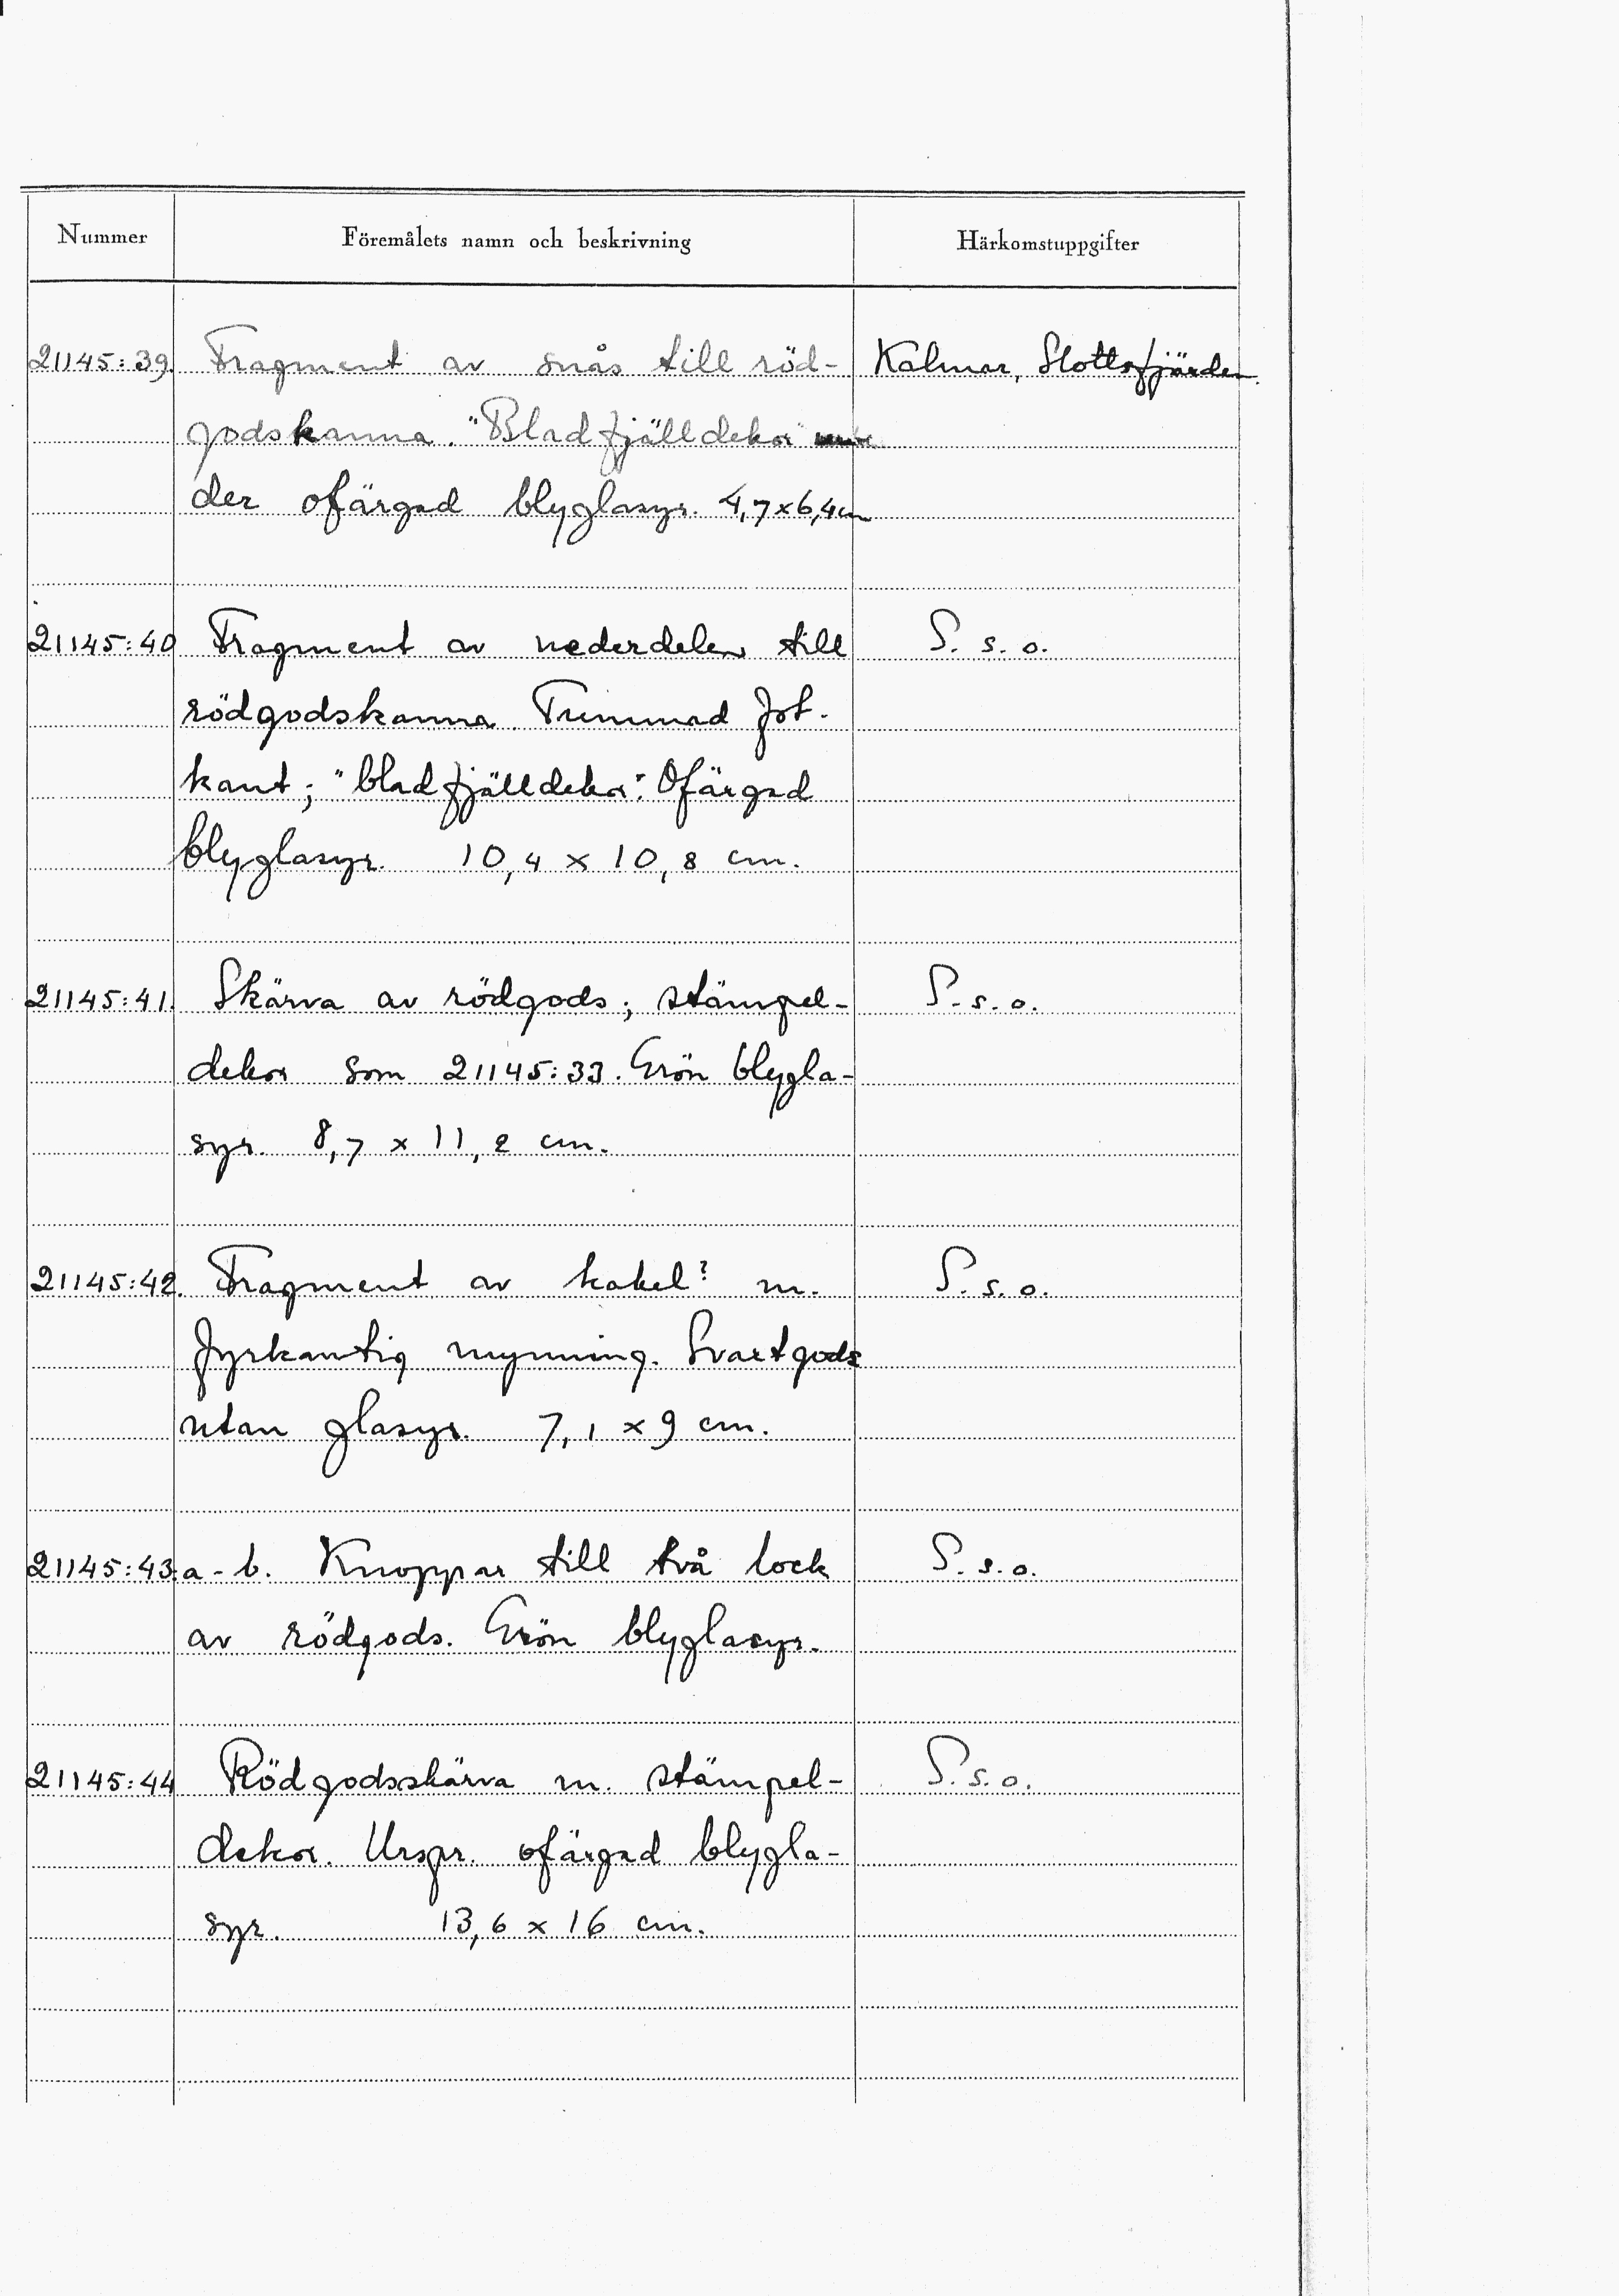 Nummer Föremålets namn och beskrivning Härkomstuppgifter
21145:39. Fragment av snås till röd- Kalmar, Slottsfjärden.
godskanna. "Bladfjälldekor"
der ofärgad blyglasyr. 4,7x6,4cm
21145:40 Fragment av nederdelen till S. s. o.
rödgodskanna. Tummad fot-
kant; "bladfjälldekor". Ofärgad
blyglasyr. 10,4 x 10,8 cm.
21145:41. Skärva av rödgods; stämpel- S. s. o.
dekor som 21145:33. Grön blygla-
syr. 8,7 x 11,2 cm.
21145:42. Fragment av kakel? m. S. s. o.
fyrkantig mynning. Svartgods
utan glasyr. 7,1 x 9 cm.
21145:43. a-b. Knoppar till två lock S. s. o.
av rödgods. Grön blyglasyr.
21145:44 Rödgodsskärva m. stämpel- S. s. o.
dekor. Urspr. ofärgad blygla-
syr. 13,6 x 16 cm.